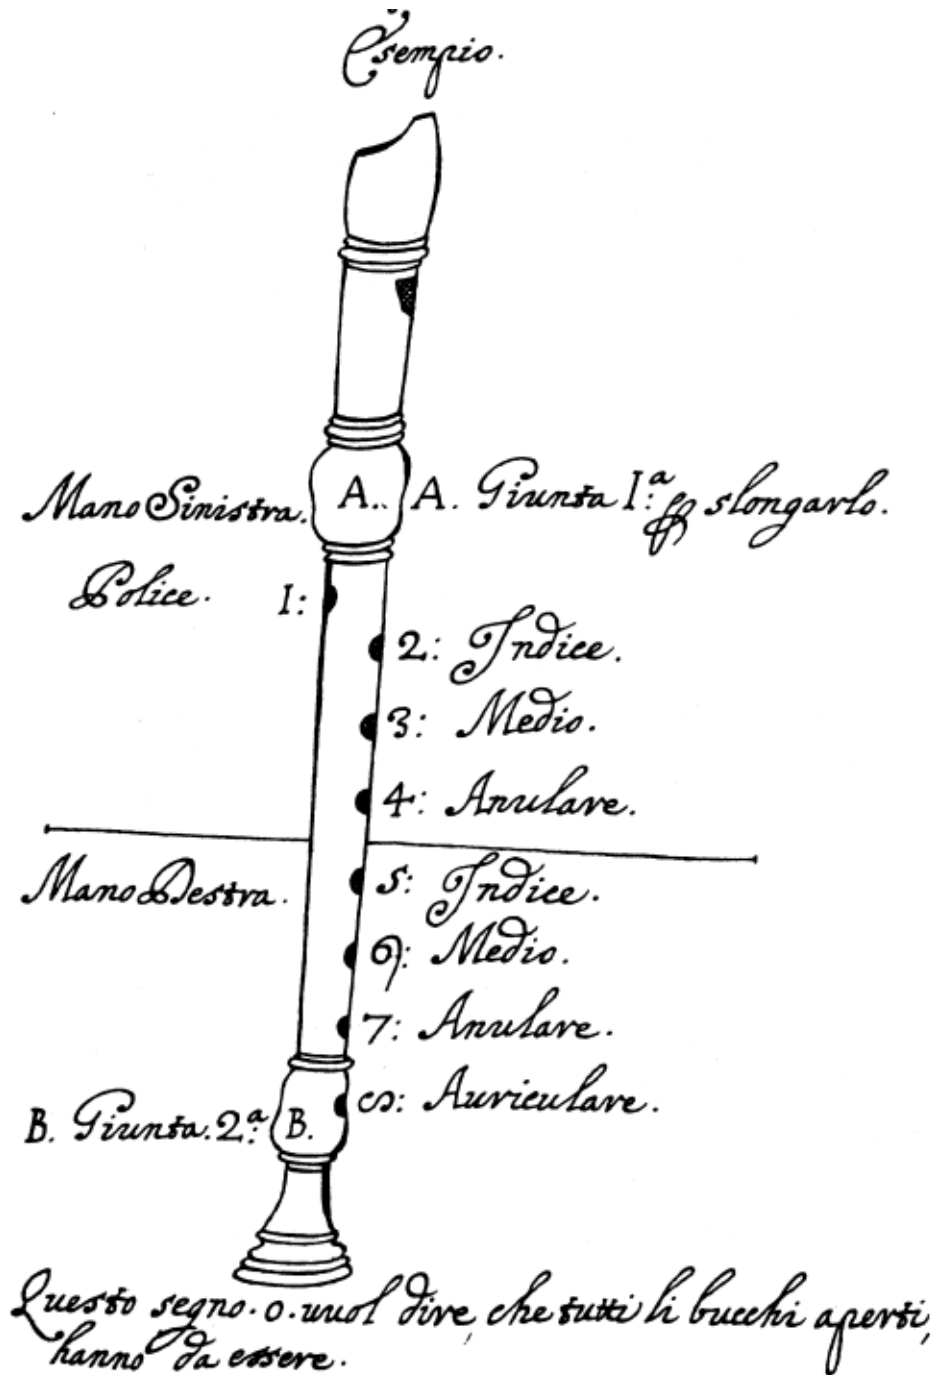 Esempio.
Mano Sinistra. A.. A. Giunta I:a p slongarlo.
Police. I:
2: Indice.
3: Medio.
4: Anulare.
Mano Destra. 5: Indice.
6: Medio.
7: Anulare.
8: Auriculare.
B. Giunta. 2:a B.
Questo segno. o. vuol dire, che tutti li bucchi aperti,
hanno da essere.